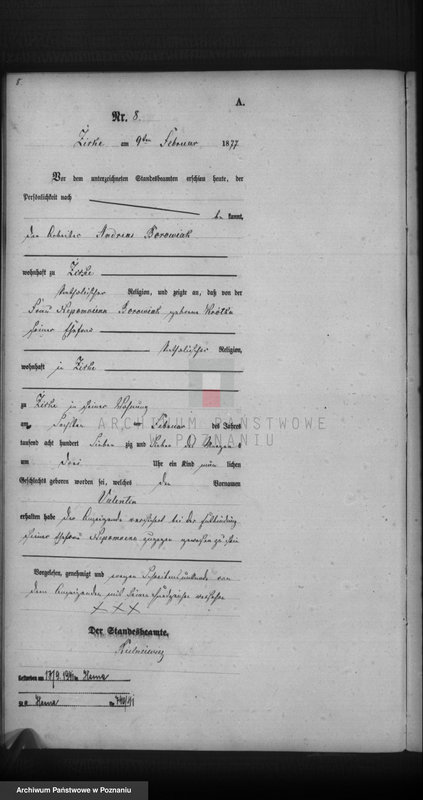 8.
A.
Nr. 8.
Zirke am 9ten Februar 1877
Vor dem unterzeichneten Standesbeamten erschien heute, der
Persönlichkeit nach
be kannt,
der Arbeiter Andreas Borowiak
wohnhaft zu Zirke
katholischer Religion, und zeigte an, daß von der
Frau Nepomucena Borowiak geborne
seiner Ehefrau
katholischer Religion,
wohnhaft in Zirke
zu Zirke in seiner Wohnung
am sechsten Februar des Jahres
tausend acht hundert sieben zig und sieben des Morgens
um drei Uhr ein Kind männ lichen
Geschlechts geboren worden sei, welches den Vornamen
Valentin
erhalten habe der Anzeigende versichert bei der Entbindung
seiner Ehefrau Nepomucena zugegen gewesen zu sein
Vorgelesen, genehmigt und wegen Schreibensunkunde von
dem Anzeigenden mit seinem Handzeichen versehen
+ + +
Der Standesbeamte.
ARCHIWUM PAŃSTWOWE
POZNANIU
Archiwum Państwowe w Poznaniu